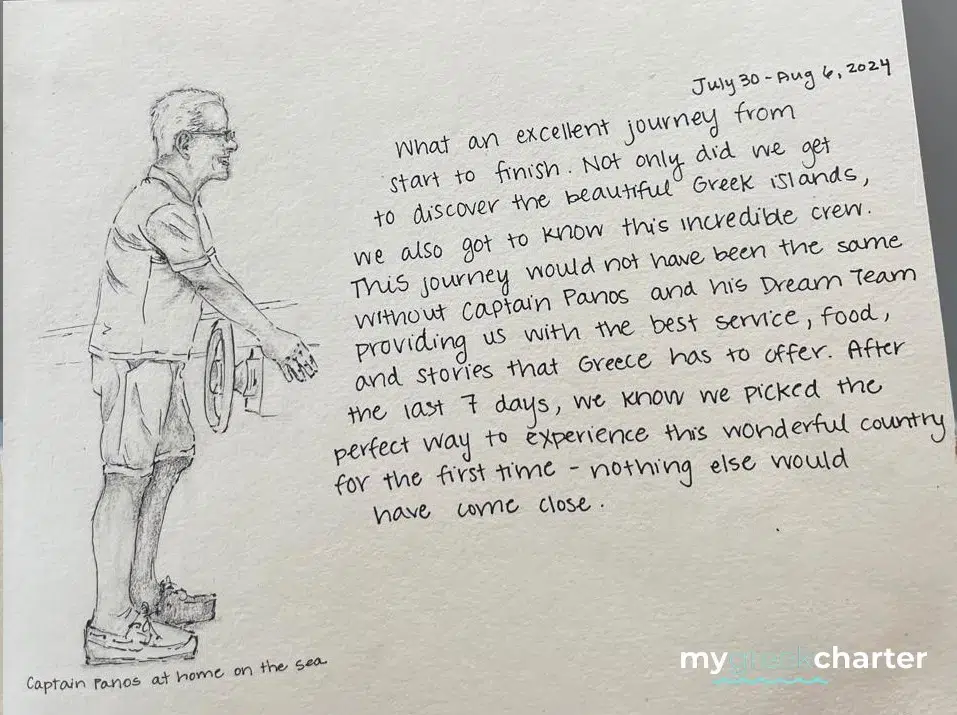 July 30 - Aug 6, 2024
What an excellent journey from
start to finish. Not only did we get
to discover the beautiful Greek islands,
we also got to know this incredible crew.
This journey would not have been the same
without Captain Panos and his Dream Team
providing us with the best service, food,
and stories that Greece has to offer. After
the last 7 days, we know we picked the
perfect way to experience this wonderful country
for the first time - nothing else would
have come close.
Captain Panos at home on the sea
mygreekcharter